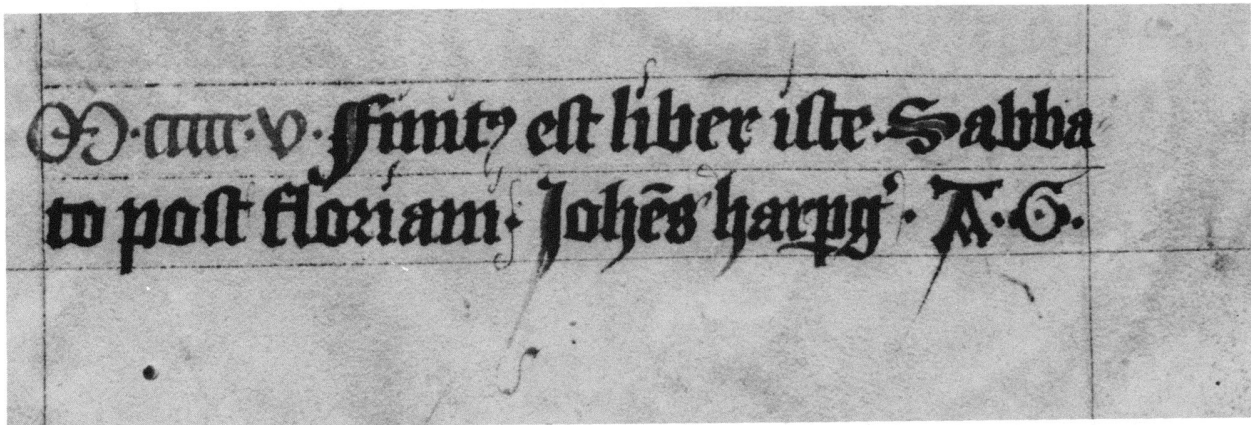 M·ccccc·v· ffinitꝰ est liber iste Sabba
to post floriani· Johēs harpgʼ· A·S·